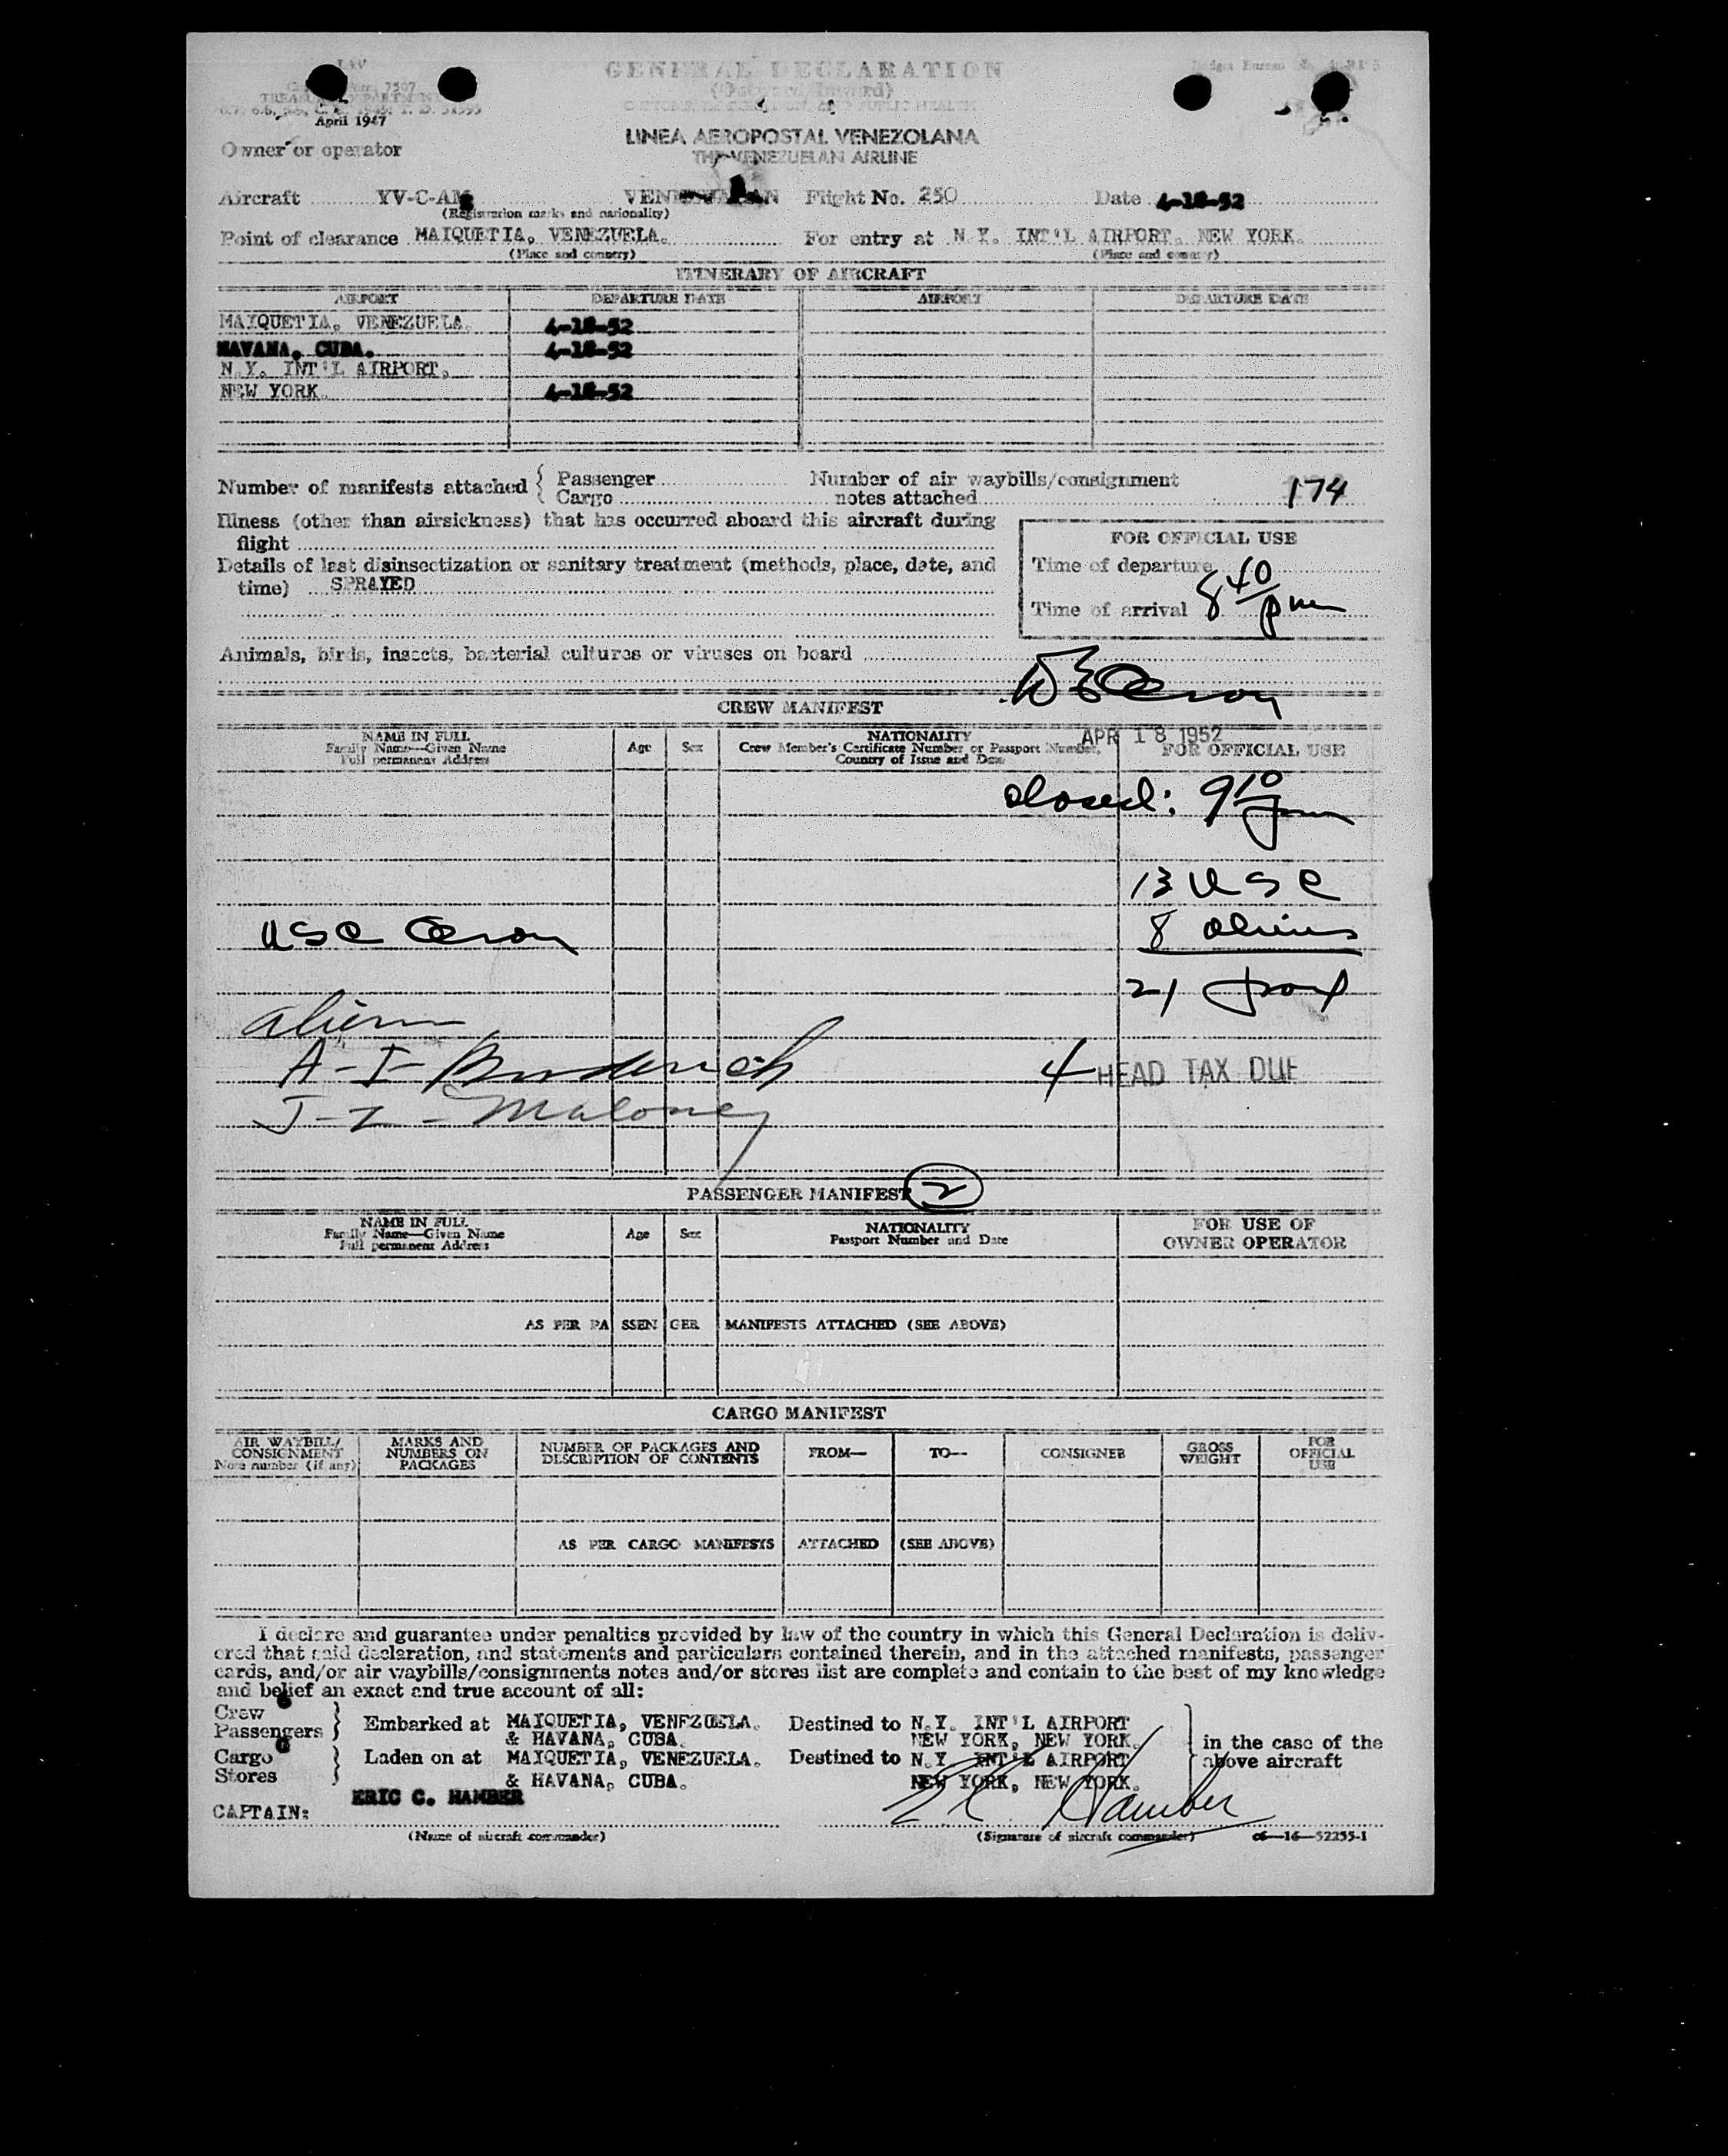 LAV
7507
TREASURY DEPARTMENT
April 1947
GENERAL DECLARATION
(Outward/Inward)
CUSTOMS, IMMIGRATION, AND PUBLIC HEALTH
LINEA AEROPOSTAL VENEZOLANA
THE VENEZUELAN AIRLINE
Owner or operator
Aircraft YV-C-AM VENEZUELAN Flight No. 250 Date 4-18-52
(Registration marks and nationality)
Point of clearance MAIQUETIA, VENEZUELA. For entry at N.Y. INT'L AIRPORT, NEW YORK.
(Place and country) (Place and country)
ITINERARY OF AIRCRAFT
AIRPORT DEPARTURE DATE AIRPORT DEPARTURE DATE
MAIQUETIA, VENEZUELA. 4-18-52
HAVANA, CUBA. 4-18-52
N.Y. INT'L AIRPORT,
NEW YORK. 4-18-52
Number of manifests attached { Passenger Number of air waybills/consignment
Cargo notes attached 174
Illness (other than airsickness) that has occurred aboard this aircraft during
flight
FOR OFFICIAL USE
Details of last disinsectization or sanitary treatment (methods, place, date, and
time) SPRAYED
Time of departure
Time of arrival 8 40 pm
Animals, birds, insects, bacterial cultures or viruses on board
CREW MANIFEST
NAME IN FULL
Family Name—Given Name
Full permanent Address
Age Sex
NATIONALITY
Crew Member's Certificate Number or Passport Number,
Country of Issue and Date
APR 18 1952
FOR OFFICIAL USE
closed: 9 10 pm
13 USC
8 aliens
USC
21
aliens
A-I-
4 HEAD TAX DUE
J-I- Maloney
PASSENGER MANIFEST 2
NAME IN FULL
Family Name—Given Name
Full permanent Address
Age Sex
NATIONALITY
Passport Number and Date
FOR USE OF
OWNER OPERATOR
AS PER PASSENGER MANIFESTS ATTACHED (SEE ABOVE)
CARGO MANIFEST
AIR WAYBILL/
CONSIGNMENT
Note number (if any)
MARKS AND
NUMBERS ON
PACKAGES
NUMBER OF PACKAGES AND
DESCRIPTION OF CONTENTS
FROM— TO— CONSIGNEE
GROSS
WEIGHT
FOR
OFFICIAL
USE
AS PER CARGO MANIFESTS ATTACHED (SEE ABOVE)
I declare and guarantee under penalties provided by law of the country in which this General Declaration is deliv-
ered that said declaration, and statements and particulars contained therein, and in the attached manifests, passenger
cards, and/or air waybills/consignments notes and/or stores list are complete and contain to the best of my knowledge
and belief an exact and true account of all:
Crew
Passengers } Embarked at MAIQUETIA, VENEZUELA. Destined to N.Y. INT'L AIRPORT
& HAVANA, CUBA. NEW YORK, NEW YORK. } in the case of the
Cargo } Laden on at MAIQUETIA, VENEZUELA. Destined to N.Y. INT'L AIRPORT above aircraft
Stores & HAVANA, CUBA. NEW YORK, NEW YORK.
ERIC C. HAMBER E C Hamber
CAPTAIN:
(Name of aircraft commander) (Signature of aircraft commander) c6—16—52255-1